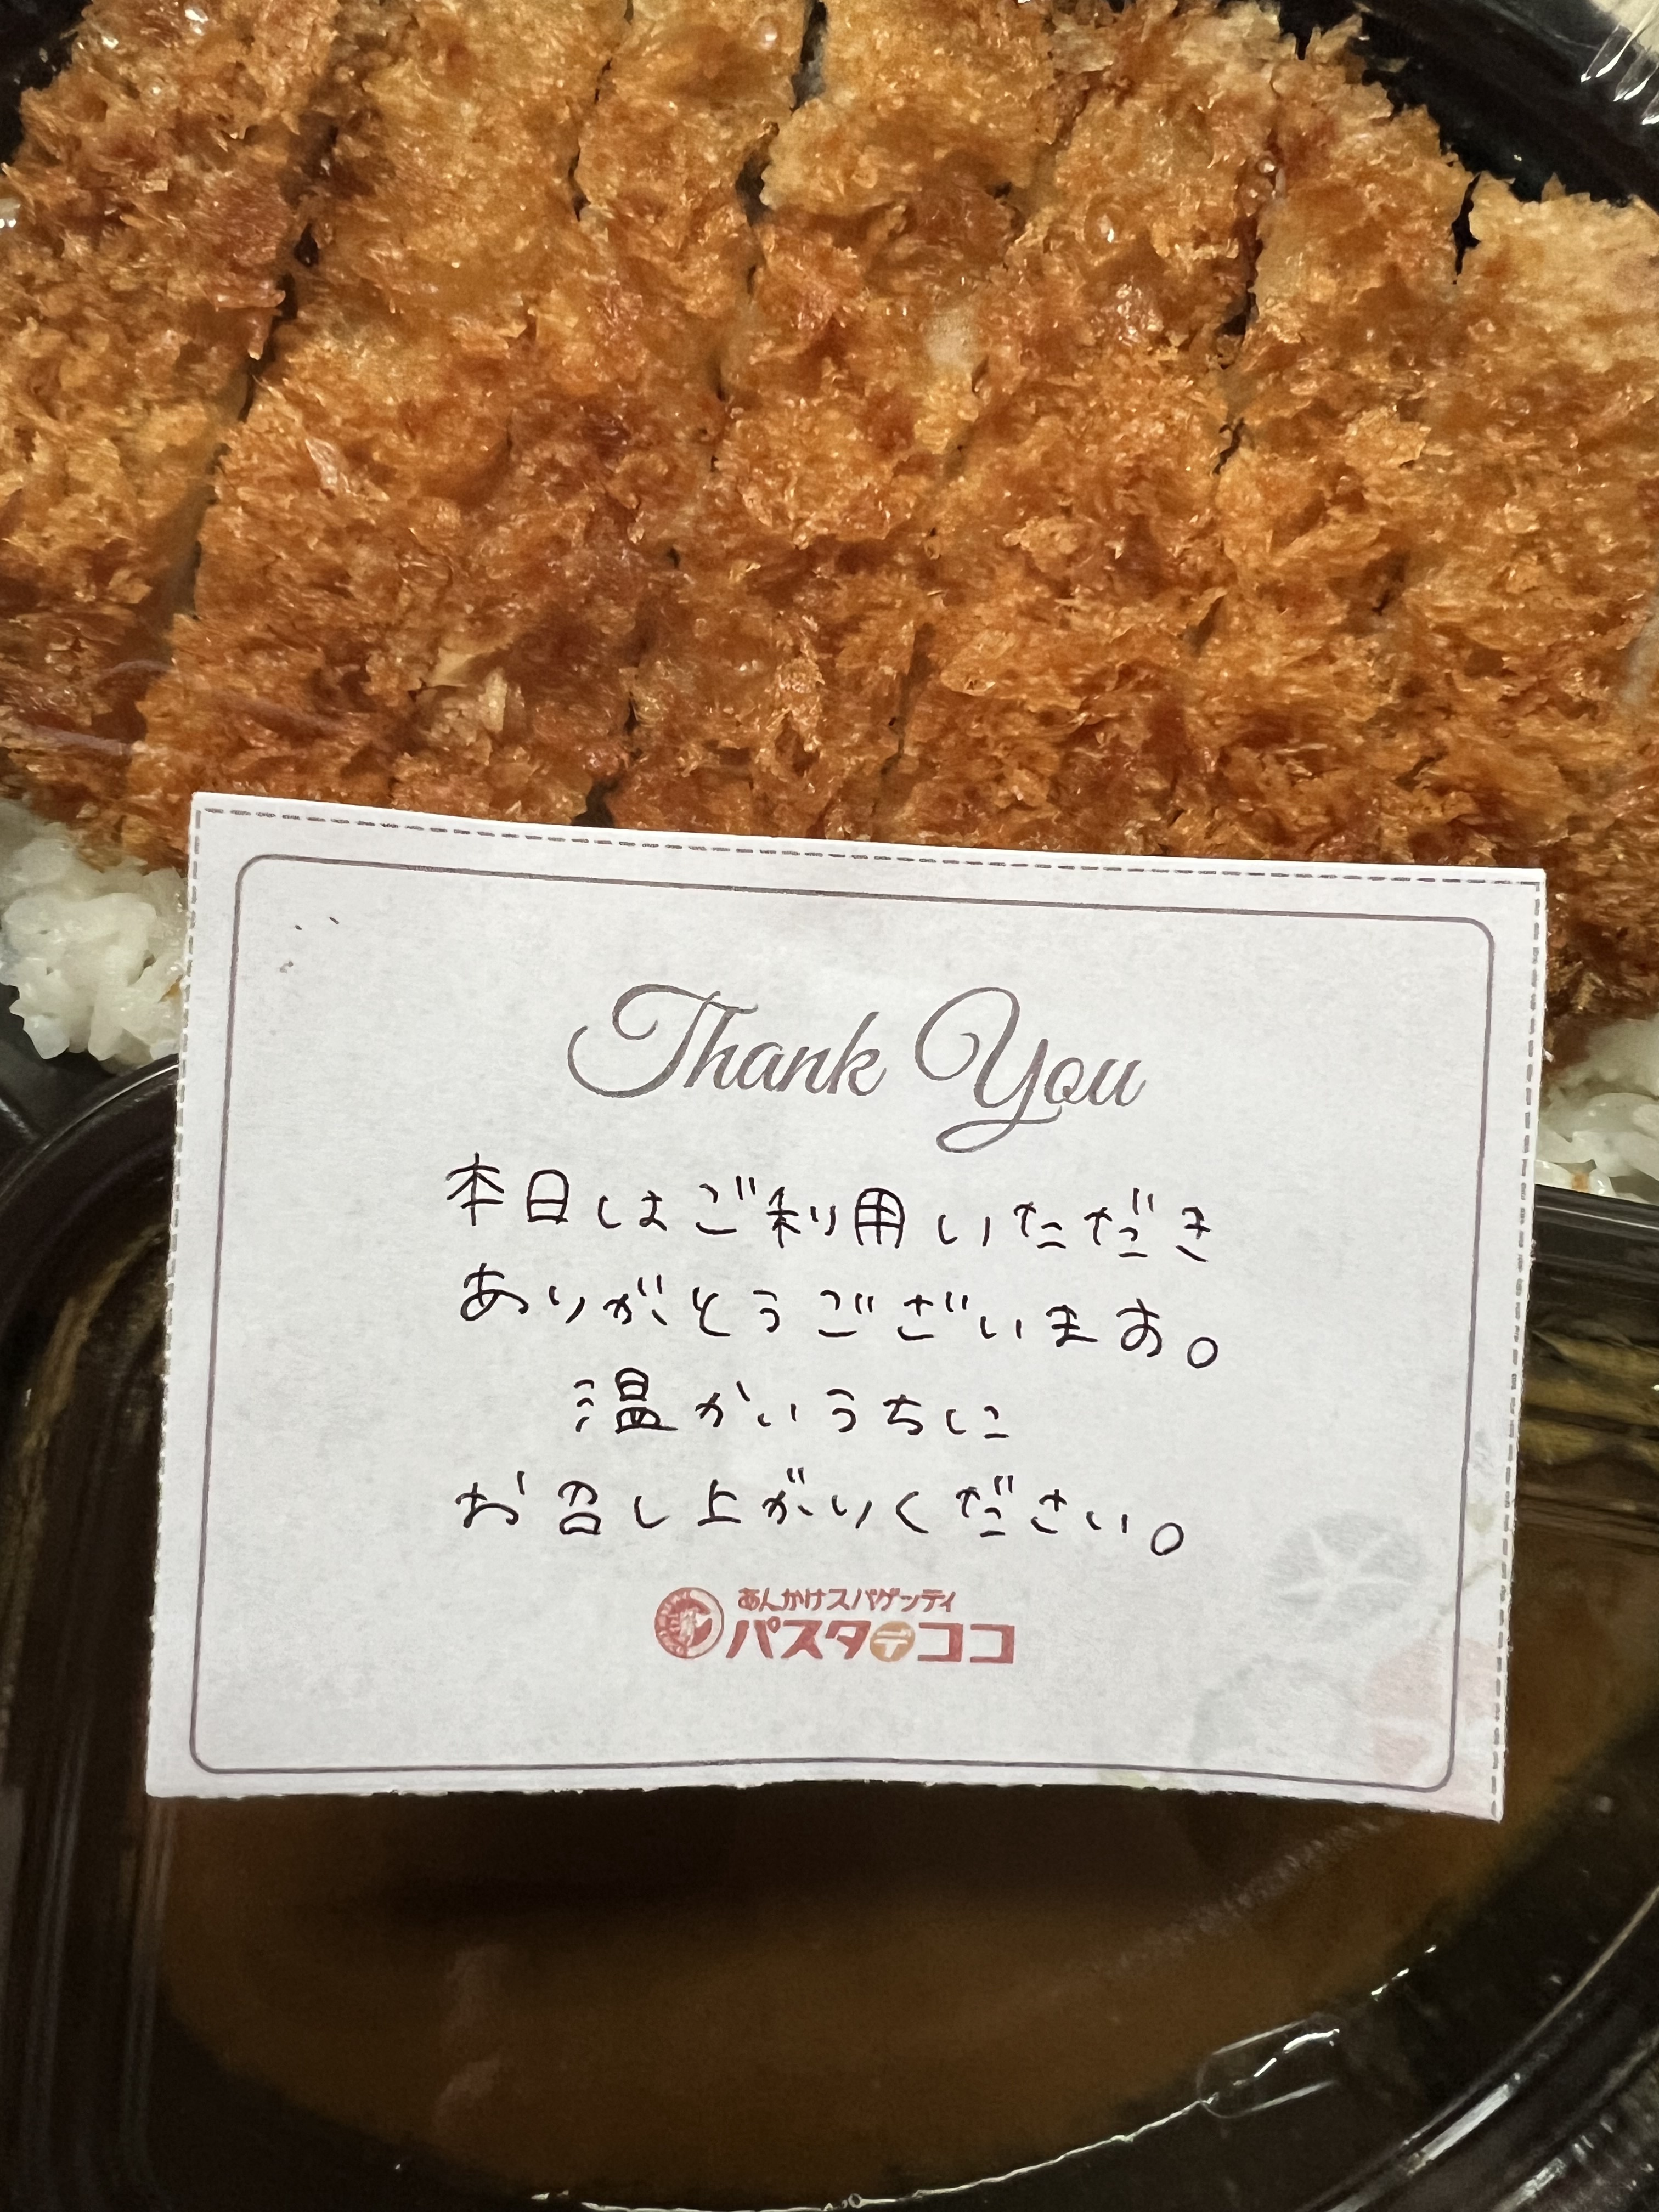 Thank You
本日はご利用いただき
ありがとうございます。
温かいうちに
お召し上がりください。
あんかけスパゲッティ
パスタデココ